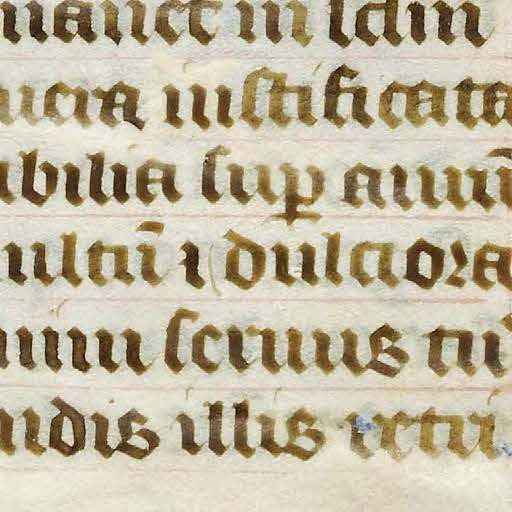 manet in sclm
uera iustificata
abilia sup aurū
ultū ⁊ dulciora
enim seruus tu᾽
ndis illis retri